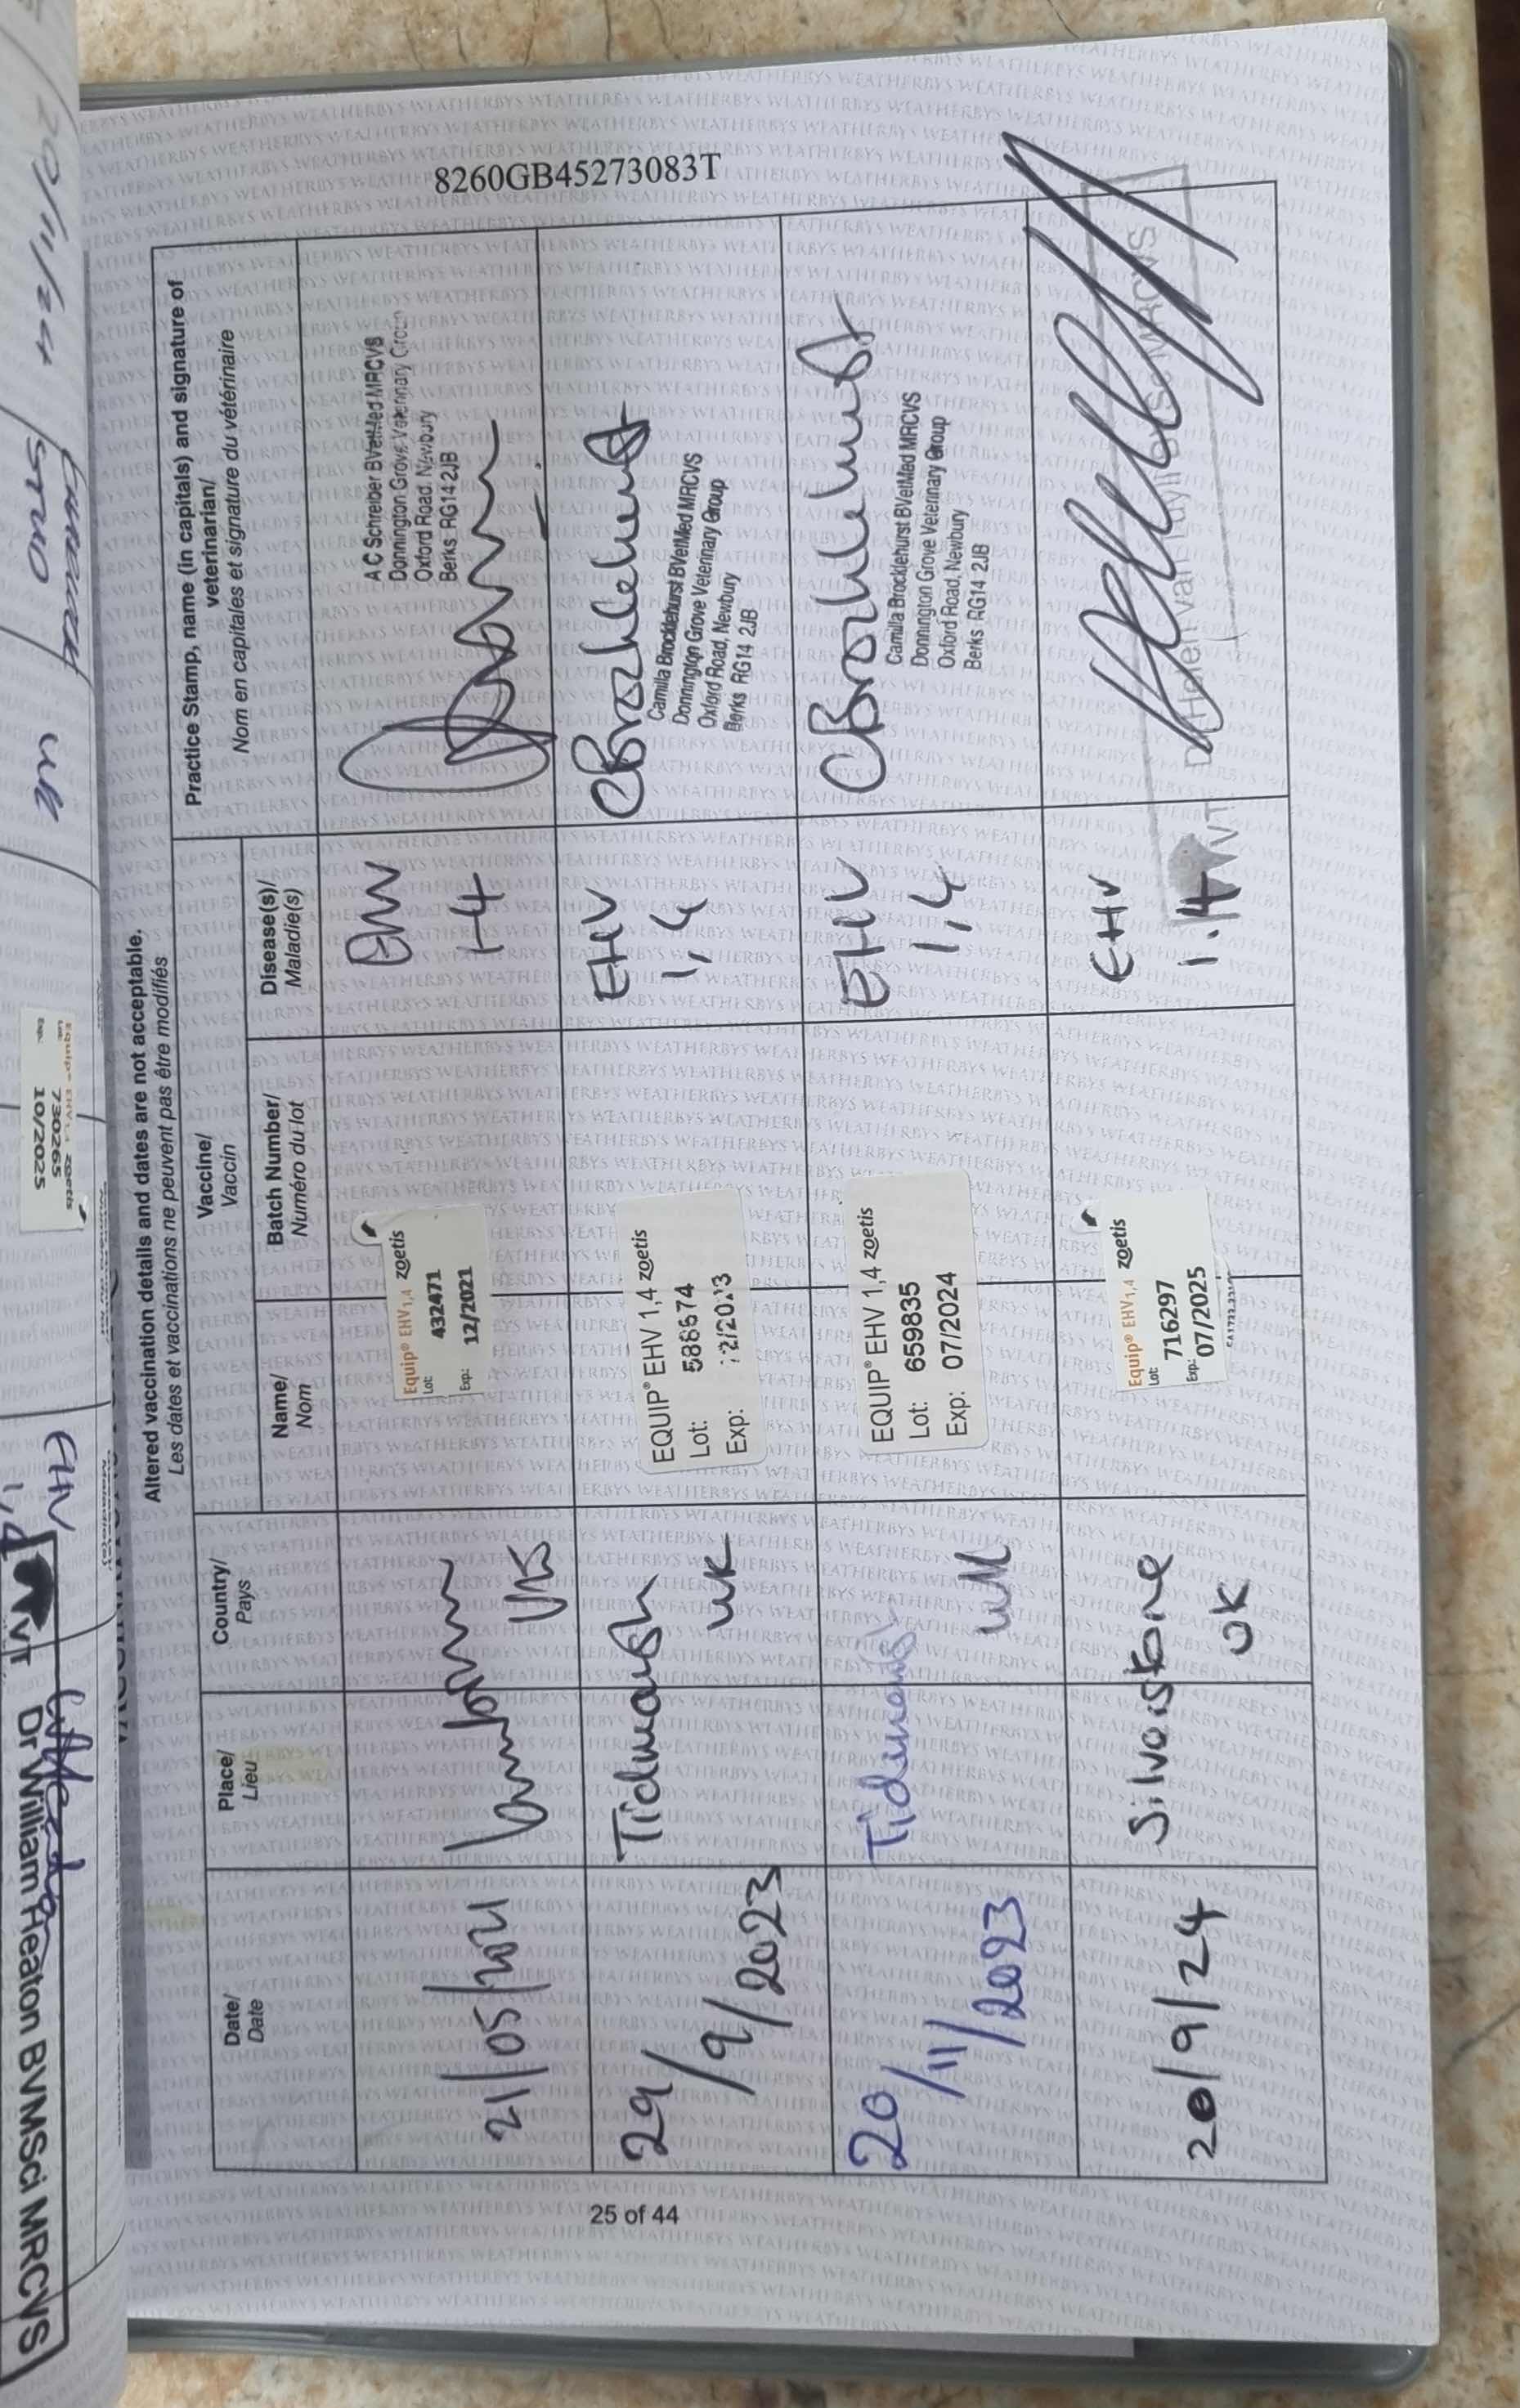 20/11/24
UK
EHV
1,4
Equip® EHV1,4 zoetis
Lot: 730265
Exp. 10/2025
Dr William Heaton BVMSci MRCVS
8260GB45273083T
Altered vaccination details and dates are not acceptable.
Les dates et vaccinations ne peuvent pas être modifiés
Date/
Date
Place/
Lieu
Country/
Pays
Vaccine/
Vaccin
Name/
Nom
Batch Number/
Numéro du lot
Disease(s)/
Maladie(s)
Practice Stamp, name (in capitals) and signature of
veterinarian/
Nom en capitales et signature du vétérinaire
21/05/2021
Equip® EHV1,4 zoetis
Lot: 432471
Exp: 12/2021
EHV
1-4
A C Schreiber BVetMed MRCVS
Donnington Grove Veterinary Group
Oxford Road, Newbury
Berks RG14 2JB
29/9/2023
Tidmarsh
UK
EQUIP® EHV 1,4 zoetis
Lot: 588674
Exp: 12/2023
EHV
1,4
CBrocklehurst
Camilla Brocklehurst BVetMed MRCVS
Donnington Grove Veterinary Group
Oxford Road, Newbury
Berks RG14 2JB
20/11/2023
Tidmarsh
UK
EQUIP® EHV 1,4 zoetis
Lot: 659835
Exp: 07/2024
EHV
1,4
CBrocklehurst
Camilla Brocklehurst BVetMed MRCVS
Donnington Grove Veterinary Group
Oxford Road, Newbury
Berks RG14 2JB
20/9/24
Silverstone
UK
Equip® EHV1,4 zoetis
Lot: 716297
Exp: 07/2025
EHV
1.4
MRCVS
25 of 44